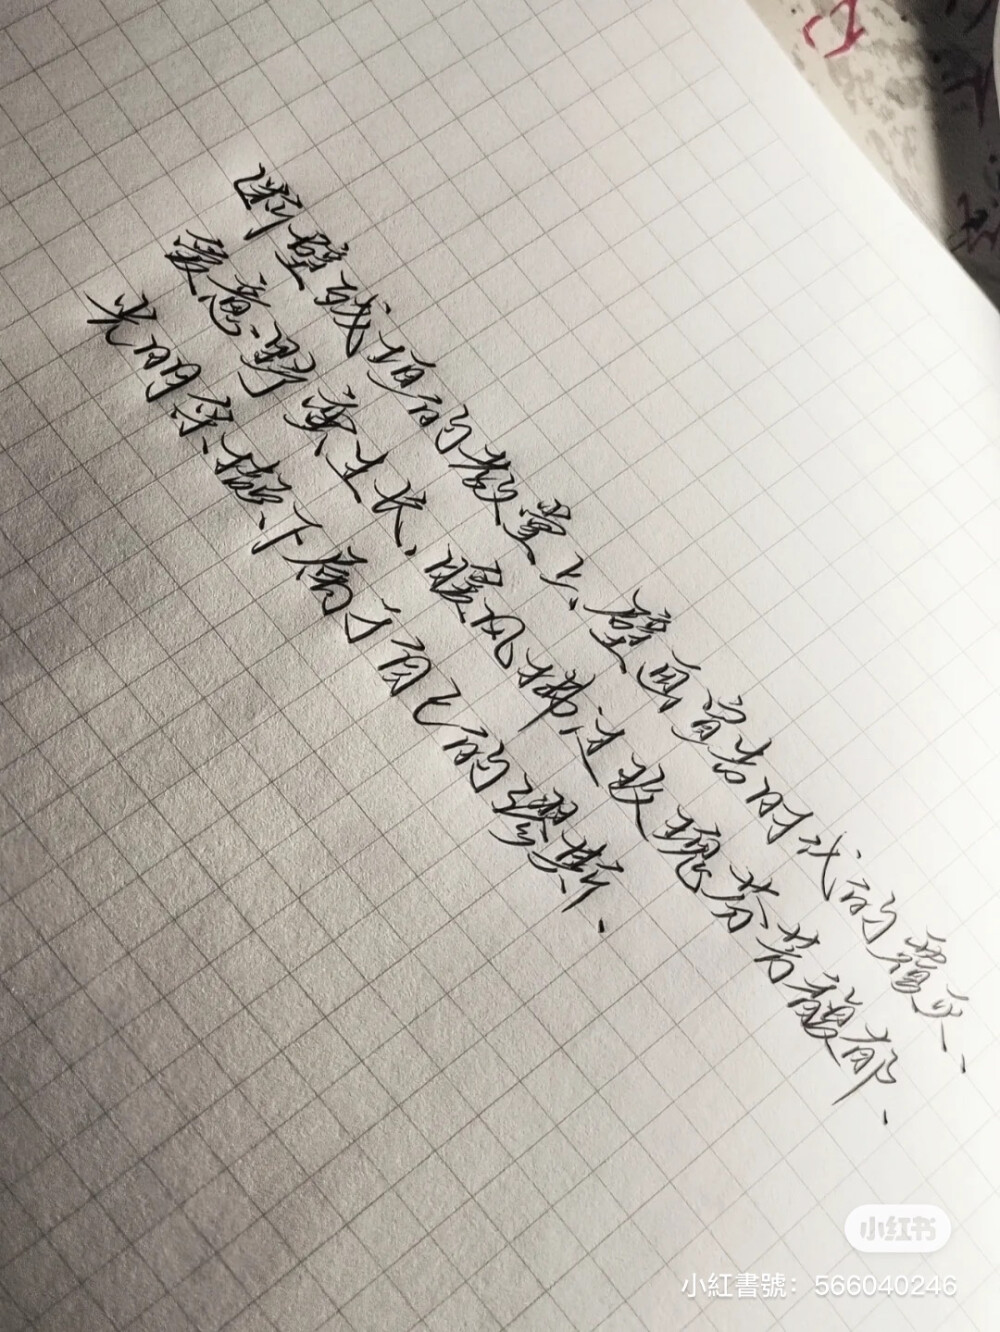 断壁残垣的教堂上、壁画宣告时代的覆灭、
爱意野蛮生长、暖风拂过玫瑰芬芳馥郁、
光明余楹下属于自己的缪斯、
小红书
小紅書號：566040246